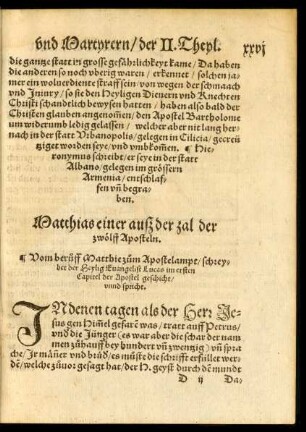 vnd Martyrern/ der II. Theyl. xxvj
die gantze statt in grosse gefährlichkeyt kame/ Da haben
die anderen so noch vberig waren/ erkennet/ solchen ja-
mer ein woluerdiente straff sein/ von wegen der schmaach
vnd Iniury/ so sie den Heyligen Dienern vnd Knechten
Christi schandtlich bewysen hatten/ haben also bald der
Christen glauben angenom̃en/ den Apostel Bartholome
um widerumb ledig gelassen/ welcher aber nit lang her-
nach in der statt Vrbanopolis/ gelegen in Cilicia/ gecreü
tziget worden seye/ vnd vmbkom̃en. ¶ Hie-
ronymus schreibt/ er seye in der statt
Albano/ gelegen im grössern
Armenia/ entschlaf-
fen vñ begra-
ben.
Matthias einer auß der zal der
zwölff Aposteln.
¶ Vom berüff Matthie zům Apostelampt/ schrey-
bet der Heylig Euangelist Lucas im ersten
Capitel der Apostel geschicht/
vnnd spricht.
IN denen tagen als der Herr Je-
sus gen Him̃el gefarẽ was/ tratt auff Petrus/
vnd die Jünger (es war aber die schar der nam
men zůhauff bey hundert vñ zwentzig) vñ spra
che/ Jr mãner vnd brüd/ es můste die schrifft erfüllet wer-
dẽ/ welche zůuor gesagt hat/ der H. geyst durch dẽ mundt
D ij Da-